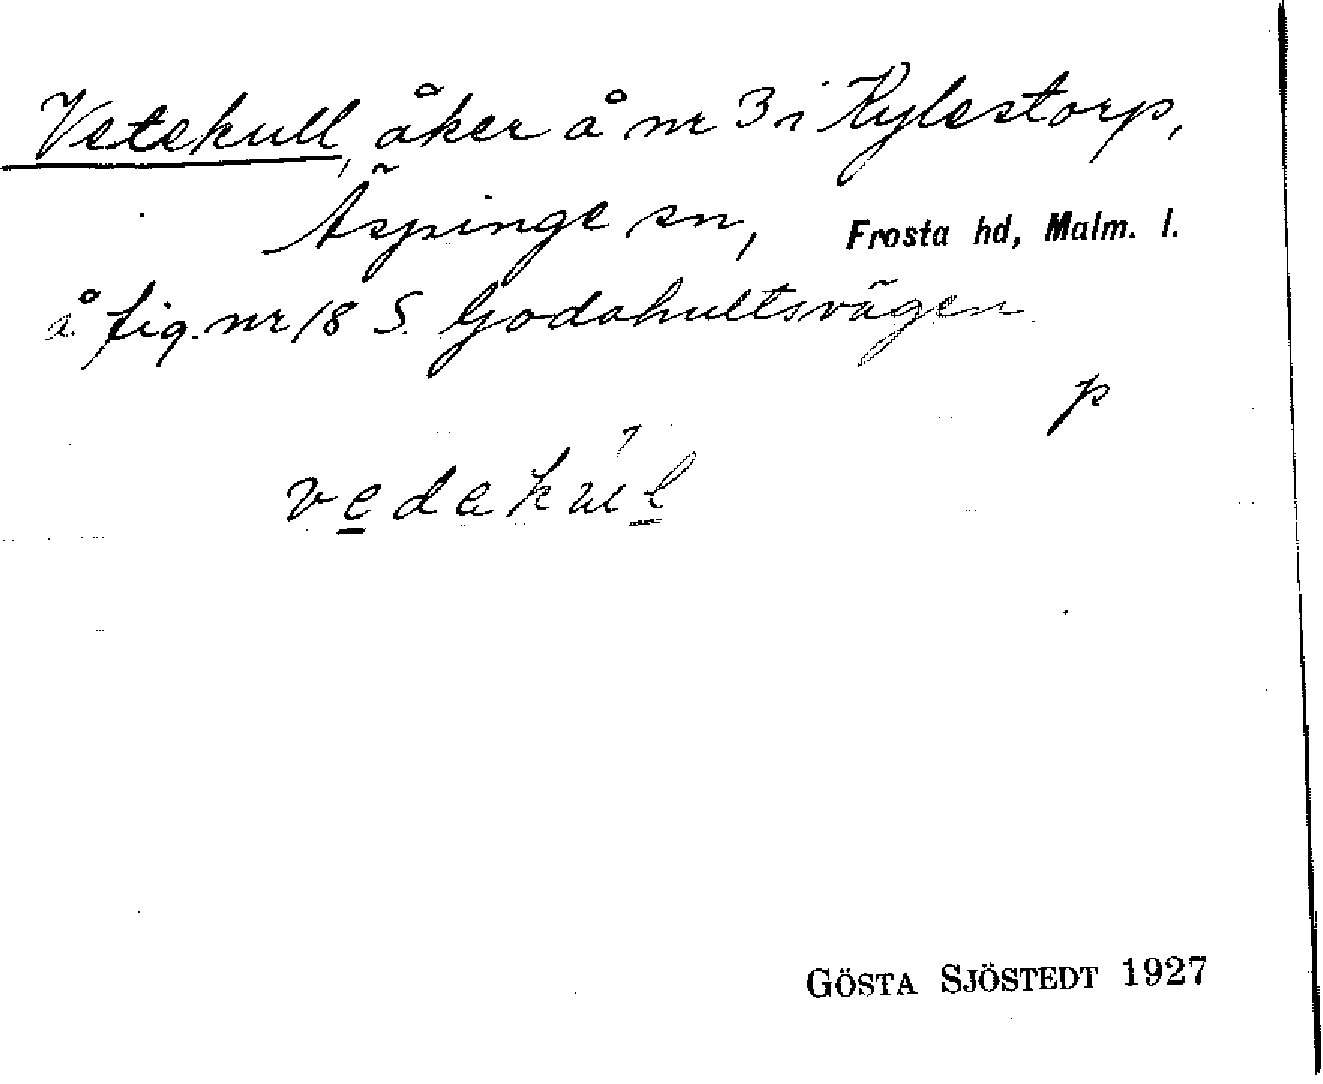 Vetekull, åker å nr 3 i Kylestorp,
Äspinge sn, Frosta hd, Malm. l.
å fig. nr 18 S. Godahultsvägen
p
vedakúl
GÖSTA SJÖSTEDT 1927